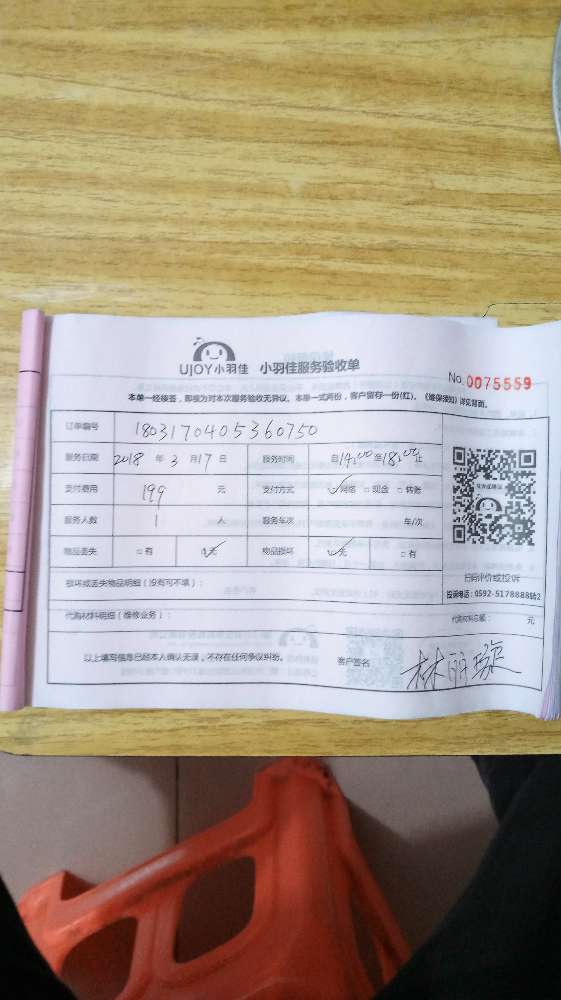 UJOY小羽佳 小羽佳服务验收单
No. 0075559
本单一经接签，即视为对本次服务验收无异议。本单一式两份，客户留存一份(红)。《维保须知》详见背面。
订单编号 1803170405360750
服务日期 2018 年 3 月 17 日 服务时间 自14:00至18:00止
支付费用 199 元 支付方式 ☑网络 □现金 □转账
服务人数 1 人 服务车次 车/次
物品丢失 □有 ☑无 物品损坏 ☑无 □有
扫码评价或投诉
投诉电话：0592-5178888转2
损坏或丢失物品明细（没有可不填）：
代购材料明细（维修业务）： 代购材料总额： 元
以上填写信息已经本人确认无误，不存在任何争议纠纷。 客户签名 林丽璇